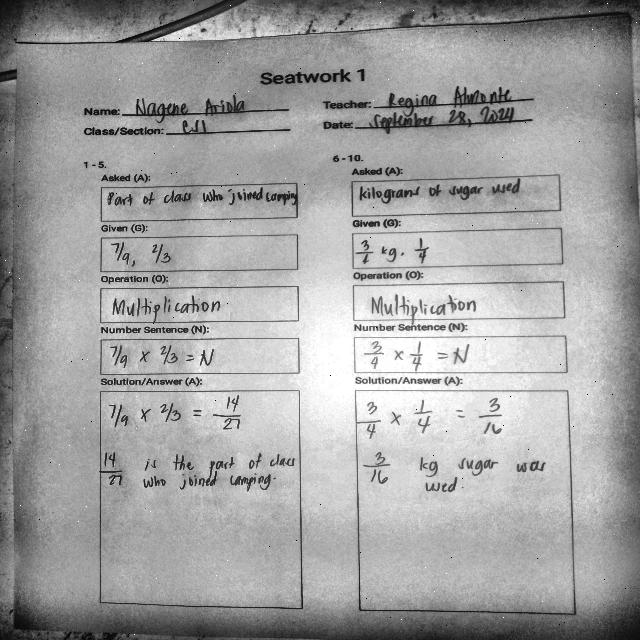 Seatwork 1
Name: Nagene Ariola
Teacher: Regina Almonte
Class/Section: PS1
Date: September 28, 2024
1 - 5.
Asked (A):
Part of class who joined camping
Given (G):
7/9, 2/3
Operation (O):
Multiplication
Number Sentence (N):
7/9 x 2/3 = N
Solution/Answer (A):
7/9 x 2/3 = 14/27
14/27 is the part of class
who joined camping.
6 - 10.
Asked (A):
kilograms of sugar used
Given (G):
3/4 kg. 1/4
Operation (O):
Multiplication
Number Sentence (N):
3/4 x 1/4 = N
Solution/Answer (A):
3/4 x 1/4 = 3/16
3/16 kg sugar was
used.